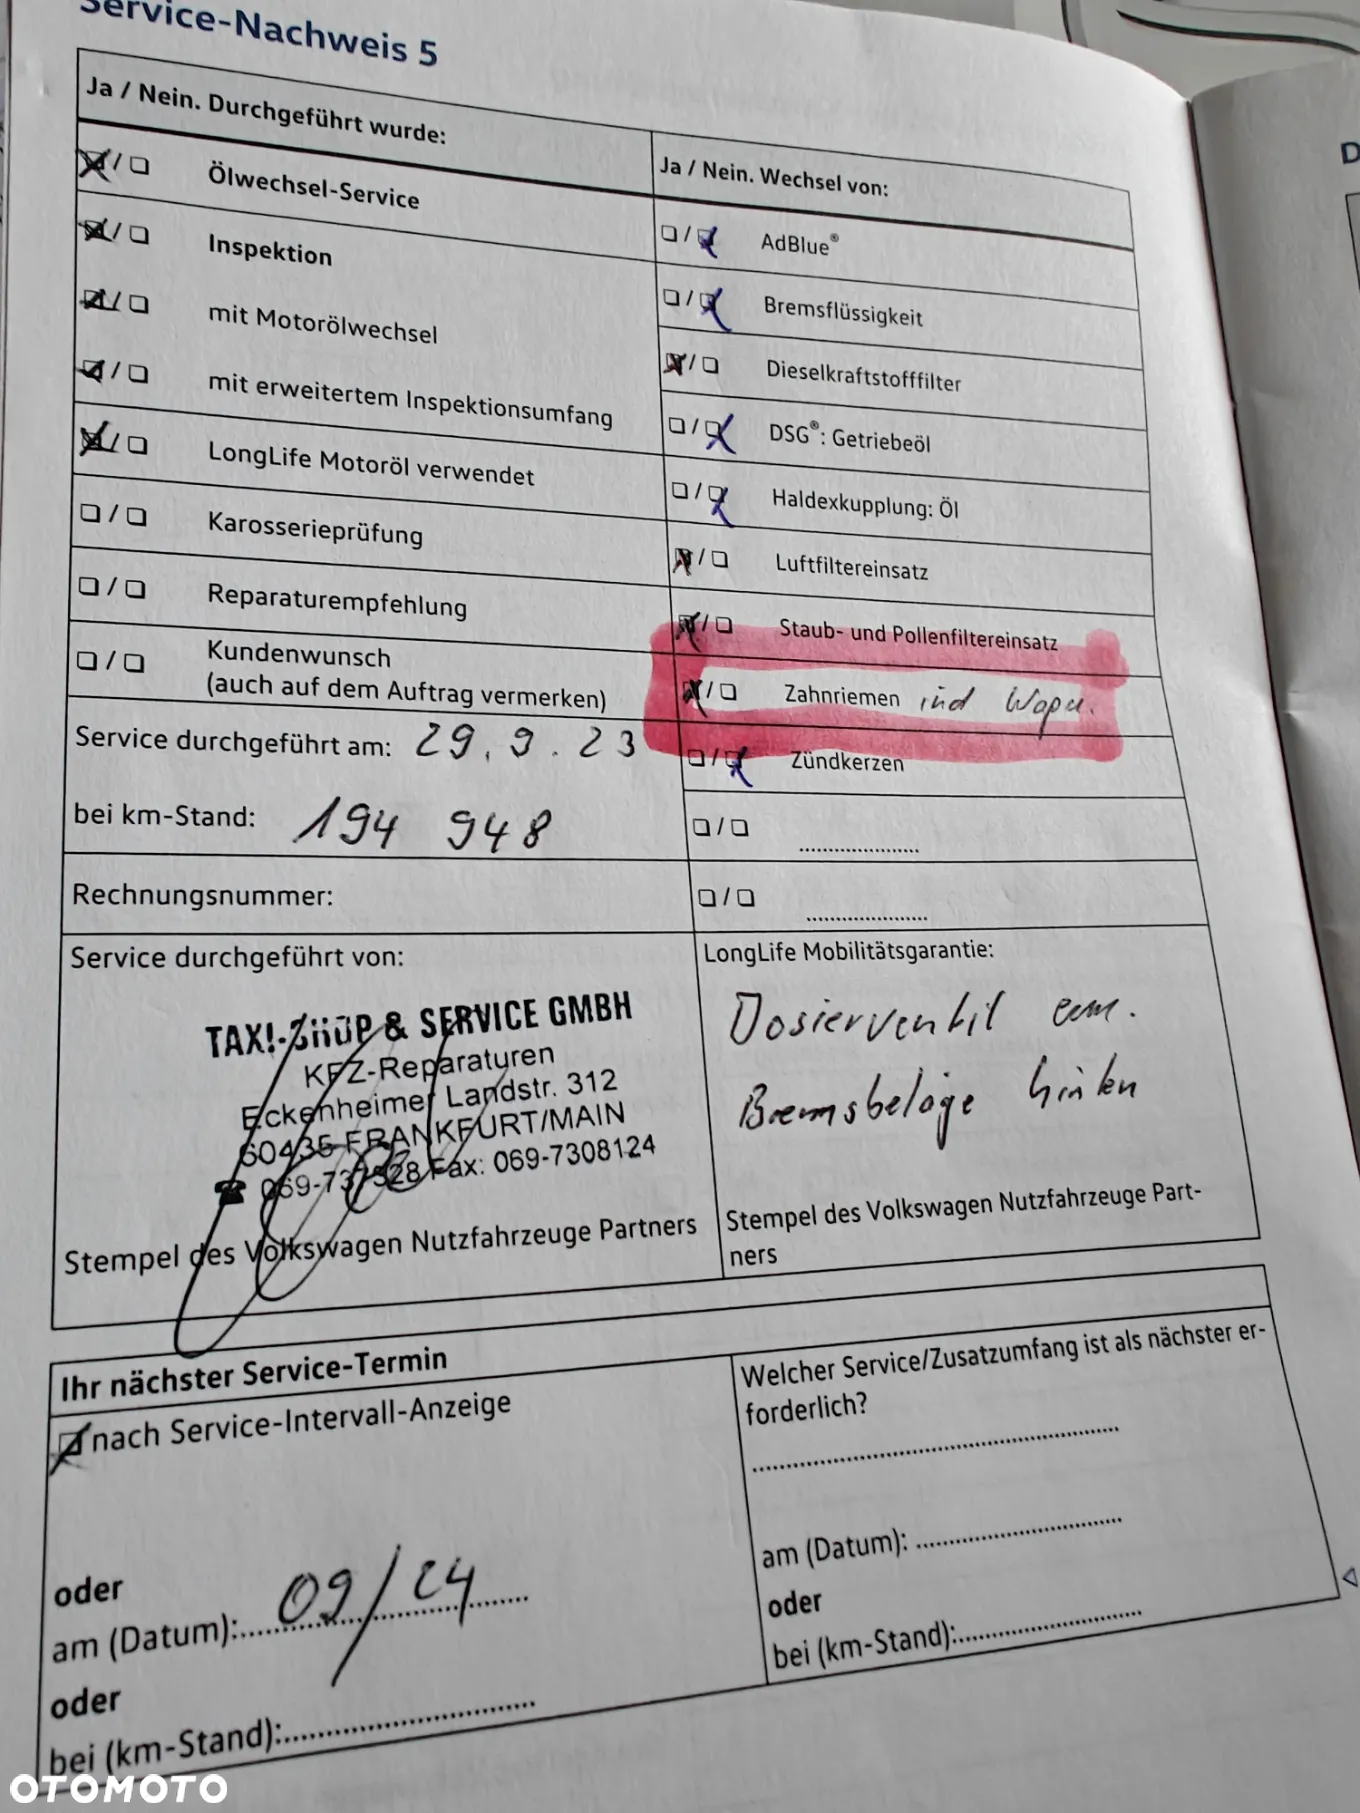 Service-Nachweis 5
Ja / Nein. Durchgeführt wurde:
Ölwechsel-Service
Inspektion
mit Motorölwechsel
mit erweitertem Inspektionsumfang
LongLife Motoröl verwendet
Karosserieprüfung
Reparaturempfehlung
Kundenwunsch
(auch auf dem Auftrag vermerken)
Service durchgeführt am: 29.9.23
bei km-Stand: 194 948
Rechnungsnummer:
Ja / Nein. Wechsel von:
AdBlue®
Bremsflüssigkeit
Dieselkraftstofffilter
DSG®: Getriebeöl
Haldexkupplung: Öl
Luftfiltereinsatz
Staub- und Pollenfiltereinsatz
Zahnriemen und Wapu.
Zündkerzen
Service durchgeführt von:
TAX!-SHOP & SERVICE GMBH
KFZ-Reparaturen
Eckenheimer Landstr. 312
60435 FRANKFURT/MAIN
Fax: 069-7308124
Stempel des Volkswagen Nutzfahrzeuge Partners
LongLife Mobilitätsgarantie:
Dosierventil ern.
Bremsbeläge hinten
Stempel des Volkswagen Nutzfahrzeuge Part-
ners
Ihr nächster Service-Termin
nach Service-Intervall-Anzeige
oder
am (Datum): 09/24
oder
bei (km-Stand):
Welcher Service/Zusatzumfang ist als nächster er-
forderlich?
am (Datum):
oder
bei (km-Stand):
D
OTOMOTO